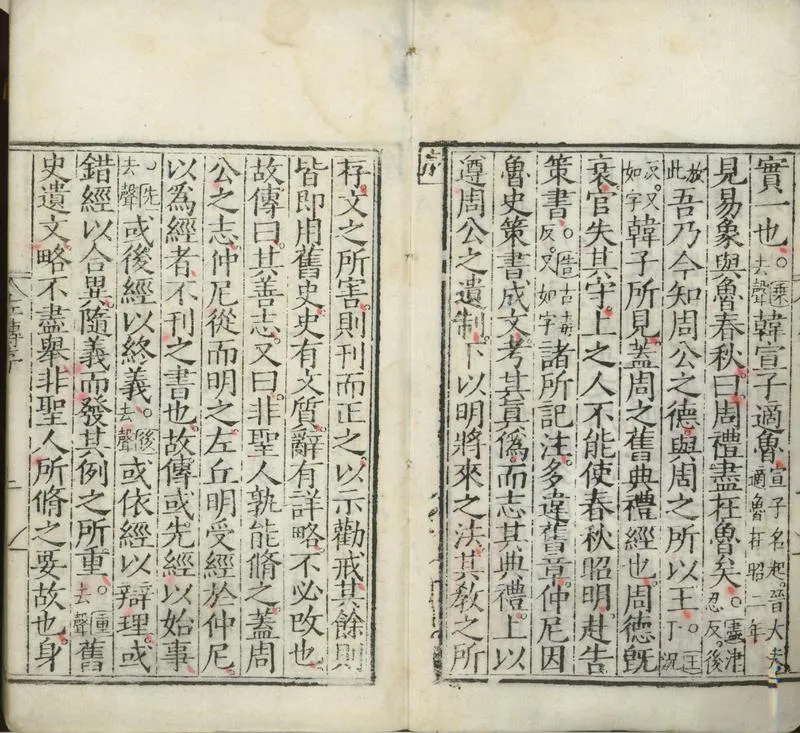 實一也。〇乘去聲韓宣子適魯宣子名起晉大夫適魯在昭二年
見易象與魯春秋曰周禮盡在魯矣。盡津忍反後
放此吾乃今知周公之德與周之所以王。王于況
反又如字韓子所見蓋周之舊典禮經也周德旣
衰官失其守上之人不能使春秋昭明赴告
策書。告古毒反又如字諸所記注多違舊章仲尼因
魯史策書成文考其眞僞而志其典禮上以
遵周公之遺制下以明將來之法其敎之所
存文之所害則刊而正之以示勸戒其餘則
皆即用舊史史有文質辭有詳略不必改也
故傳曰其善志又曰非聖人孰能脩之蓋周
公之志仲尼從而明之左丘明受經於仲尼
以爲經者不刊之書也故傳或先經以始事
〇先去聲或後經以終義。後去聲或依經以辯理或
錯經以合異隨義而發其例之所重。重去聲舊
史遺文略不盡舉非聖人所脩之要故也身
左傳序